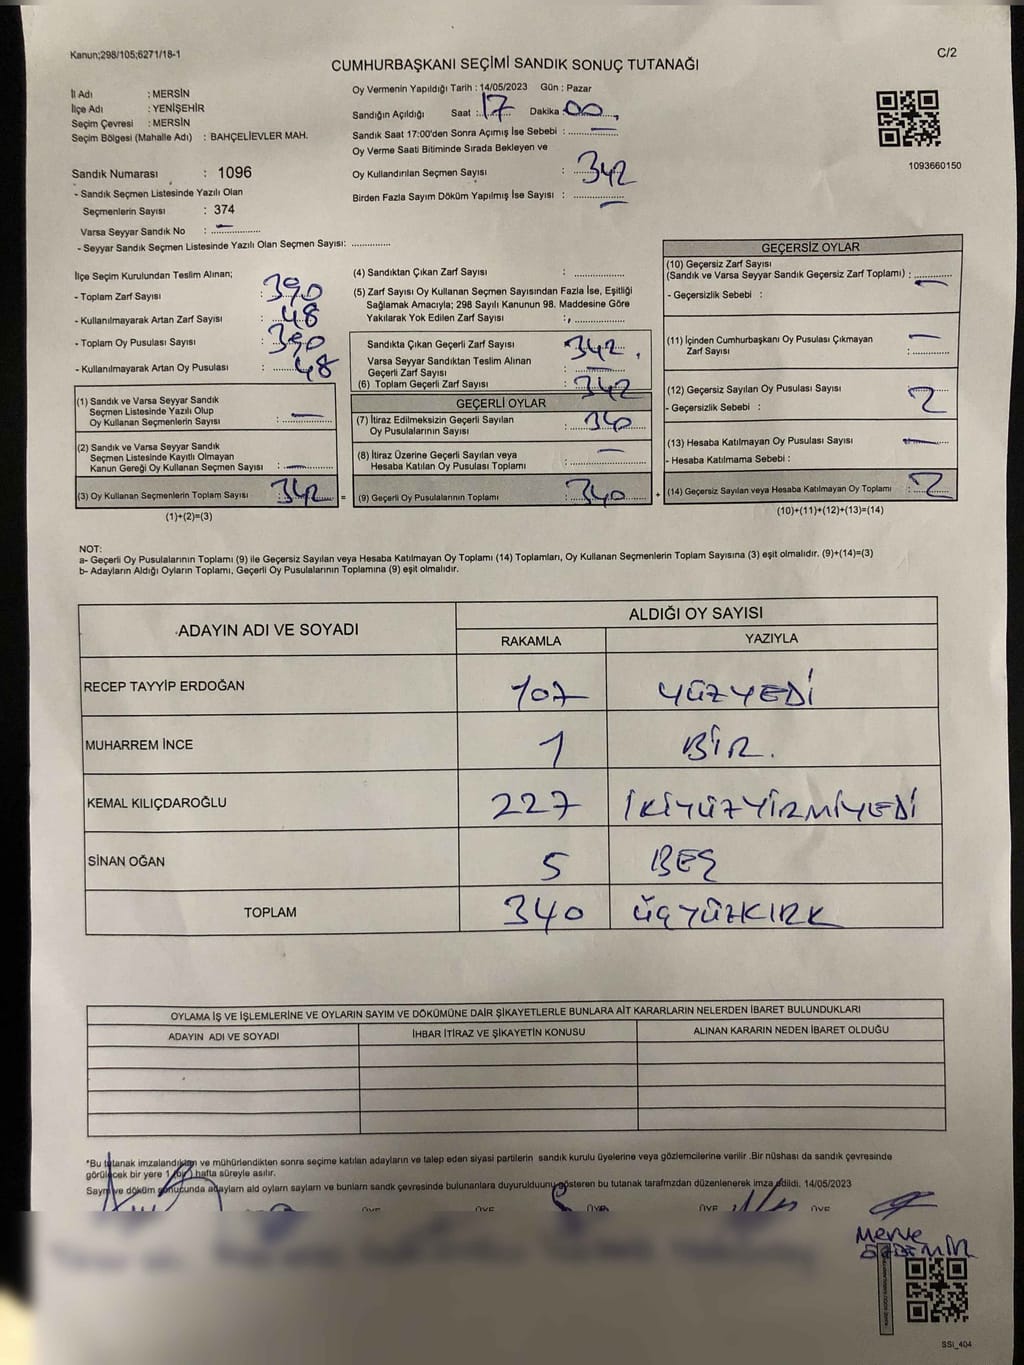 Kanun;298/105;6271/18-1
C/2
CUMHURBAŞKANI SEÇİMİ SANDIK SONUÇ TUTANAĞI
İl Adı : MERSİN
İlçe Adı : YENİŞEHİR
Seçim Çevresi : MERSİN
Seçim Bölgesi (Mahalle Adı) : BAHÇELİEVLER MAH.
Sandık Numarası : 1096
- Sandık Seçmen Listesinde Yazılı Olan
Seçmenlerin Sayısı : 374
Varsa Seyyar Sandık No : —
- Seyyar Sandık Seçmen Listesinde Yazılı Olan Seçmen Sayısı: ..............
Oy Vermenin Yapıldığı Tarih : 14/05/2023 Gün : Pazar
Sandığın Açıldığı Saat : 17 Dakika 00
Sandık Saat 17:00'den Sonra Açımış İse Sebebi : —
Oy Verme Saati Bitiminde Sırada Bekleyen ve
Oy Kullandırılan Seçmen Sayısı : 342
Birden Fazla Sayım Döküm Yapılmış İse Sayısı : —
1093660150
İlçe Seçim Kurulundan Teslim Alınan;
- Toplam Zarf Sayısı : 390
- Kullanılmayarak Artan Zarf Sayısı : 48
- Toplam Oy Pusulası Sayısı : 390
- Kullanılmayarak Artan Oy Pusulası : 48
(1) Sandık ve Varsa Seyyar Sandık
Seçmen Listesinde Yazılı Olup
Oy Kullanan Seçmenlerin Sayısı : —
(2) Sandık ve Varsa Seyyar Sandık
Seçmen Listesinde Kayıtlı Olmayan
Kanun Gereği Oy Kullanan Seçmen Sayısı : —
(3) Oy Kullanan Seçmenlerin Toplam Sayısı : 342 =
(1)+(2)=(3)
(4) Sandıktan Çıkan Zarf Sayısı : ..............
(5) Zarf Sayısı Oy Kullanan Seçmen Sayısından Fazla İse, Eşitliği
Sağlamak Amacıyla; 298 Sayılı Kanunun 98. Maddesine Göre
Yakılarak Yok Edilen Zarf Sayısı : ..............
Sandıkta Çıkan Geçerli Zarf Sayısı : 342
Varsa Seyyar Sandıktan Teslim Alınan
Geçerli Zarf Sayısı :
(6) Toplam Geçerli Zarf Sayısı : 342
GEÇERLİ OYLAR
(7) İtiraz Edilmeksizin Geçerli Sayılan
Oy Pusulalarının Sayısı : 340
(8) İtiraz Üzerine Geçerli Sayılan veya
Hesaba Katılan Oy Pusulası Toplamı : —
(9) Geçerli Oy Pusulalarının Toplamı : 340 +
GEÇERSİZ OYLAR
(10) Geçersiz Zarf Sayısı
(Sandık ve Varsa Seyyar Sandık Geçersiz Zarf Toplamı) : —
- Geçersizlik Sebebi :
(11) İçinden Cumhurbaşkanı Oy Pusulası Çıkmayan
Zarf Sayısı : —
(12) Geçersiz Sayılan Oy Pusulası Sayısı 2
- Geçersizlik Sebebi :
(13) Hesaba Katılmayan Oy Pusulası Sayısı —
- Hesaba Katılmama Sebebi :
(14) Geçersiz Sayılan veya Hesaba Katılmayan Oy Toplamı : 2
(10)+(11)+(12)+(13)=(14)
NOT:
a- Geçerli Oy Pusulalarının Toplamı (9) ile Geçersiz Sayılan veya Hesaba Katılmayan Oy Toplamı (14) Toplamları, Oy Kullanan Seçmenlerin Toplam Sayısına (3) eşit olmalıdır. (9)+(14)=(3)
b- Adayların Aldığı Oyların Toplamı, Geçerli Oy Pusulalarının Toplamına (9) eşit olmalıdır.
ADAYIN ADI VE SOYADI ALDIĞI OY SAYISI
RAKAMLA YAZIYLA
RECEP TAYYİP ERDOĞAN 107 YÜZYEDİ
MUHARREM İNCE 1 BİR.
KEMAL KILIÇDAROĞLU 227 İKİYÜZYİRMİYEDİ
SİNAN OĞAN 5 BEŞ
TOPLAM 340 ÜÇYÜZKIRK
OYLAMA İŞ VE İŞLEMLERİNE VE OYLARIN SAYIM VE DÖKÜMÜNE DAİR ŞİKAYETLERLE BUNLARA AİT KARARLARIN NELERDEN İBARET BULUNDUKLARI
ADAYIN ADI VE SOYADI İHBAR İTİRAZ VE ŞİKAYETİN KONUSU ALINAN KARARIN NEDEN İBARET OLDUĞU
*Bu tutanak imzalandıktan ve mühürlendikten sonra seçime katılan adayların ve talep eden siyasi partilerin sandık kurulu üyelerine veya gözlemcilerine verilir .Bir nüshası da sandık çevresinde
görülecek bir yere 1 (bir) hafta süreyle asılır.
Sayım ve döküm sonucunda adayların ald oyların sayları ve bunların sandk çevresinde bulunanlara duyurulduunu gösteren bu tutanak tarafmzdan düzenlenerek imza edildi. 14/05/2023
ÜYE ÜYE ÜYE ÜYE ÜYE
Merve
ÖZDEMİR
SSI_404